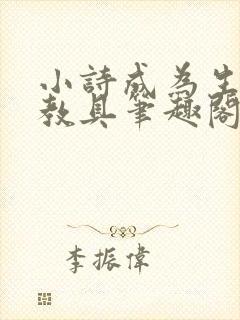 小詩成為生
教具筆趣閣
李振偉